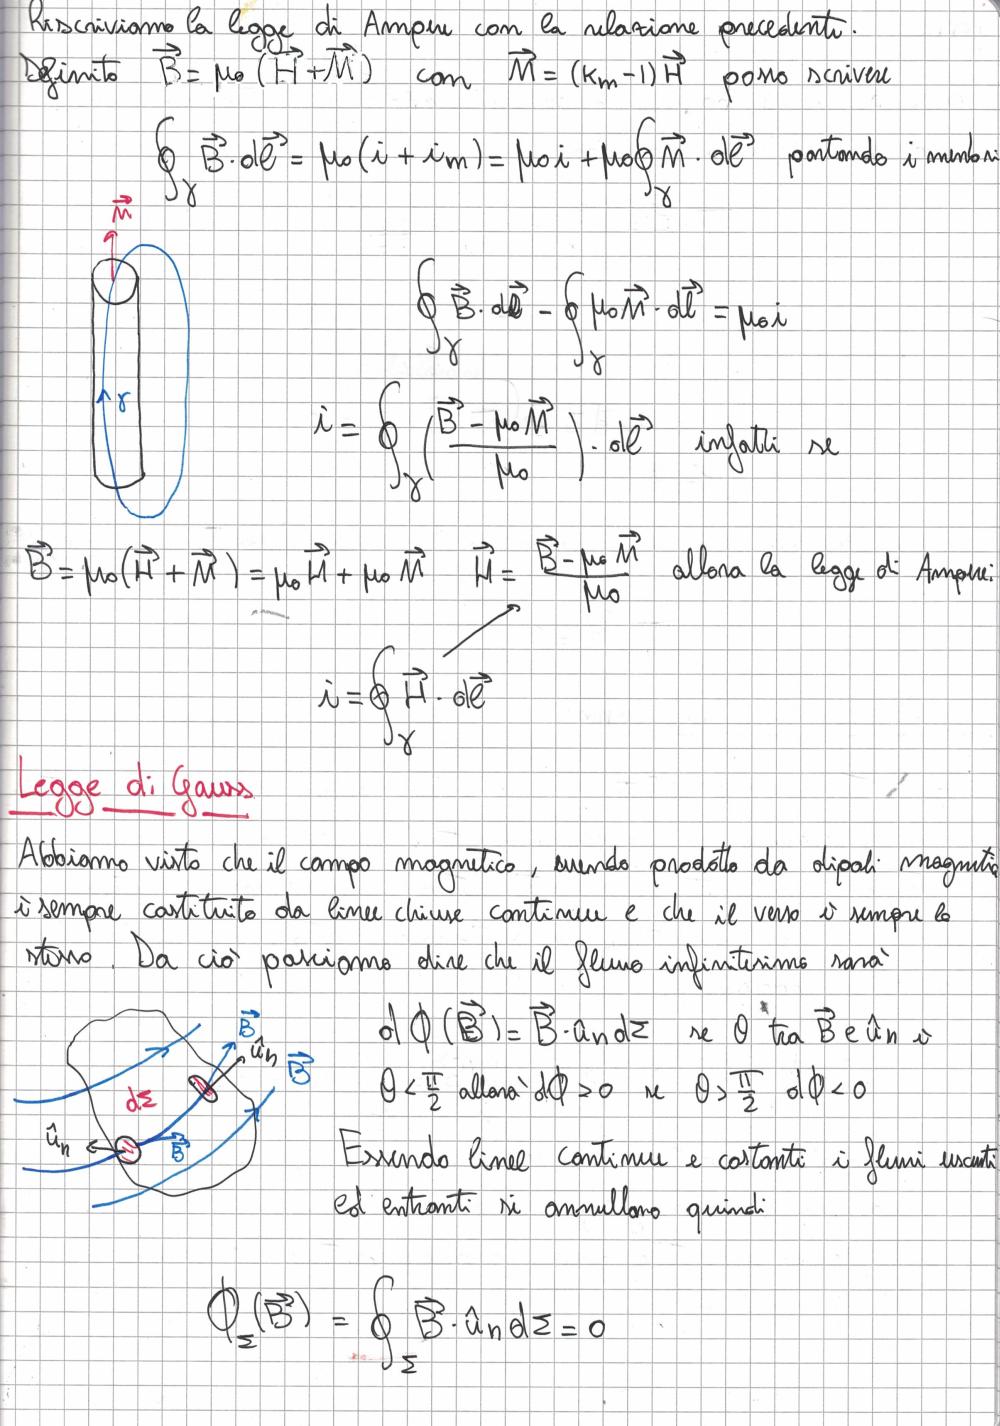 Riscriviamo la legge di Ampere con la relazione precedente.
Definito B⃗ = μ₀(H⃗ + M⃗) con M⃗ = (Km-1)H⃗ posso scrivere
∮γ B⃗·dℓ⃗ = μ₀(i + im) = μ₀i + μ₀∮γ M⃗·dℓ⃗ portando i membri
M⃗
γ
∮γ B⃗·dℓ⃗ - ∮γ μ₀M⃗·dℓ⃗ = μ₀i
i = ∮γ ((B⃗ - μ₀M⃗)/μ₀)·dℓ⃗ infatti se
B⃗ = μ₀(H⃗ + M⃗) = μ₀H⃗ + μ₀M⃗ H⃗ = (B⃗ - μ₀M⃗)/μ₀ allora la legge di Ampere:
i = ∮γ H⃗·dℓ⃗
Legge di Gauss
Abbiamo visto che il campo magnetico, essendo prodotto da dipoli magnetici
è sempre costituito da linee chiuse continue e che il verso è sempre lo
stesso. Da ciò possiamo dire che il flusso infinitesimo sarà
dΦ(B⃗) = B⃗·ûn dΣ se θ tra B⃗ e ûn è
θ < π/2 allora dΦ > 0 se θ > π/2 dΦ < 0
B⃗
ûn
B⃗
dΣ
ûn
B⃗
Essendo linee continue e costanti i flussi uscenti
ed entranti si annullano quindi
ΦΣ(B⃗) = ∮Σ B⃗·ûn dΣ = 0